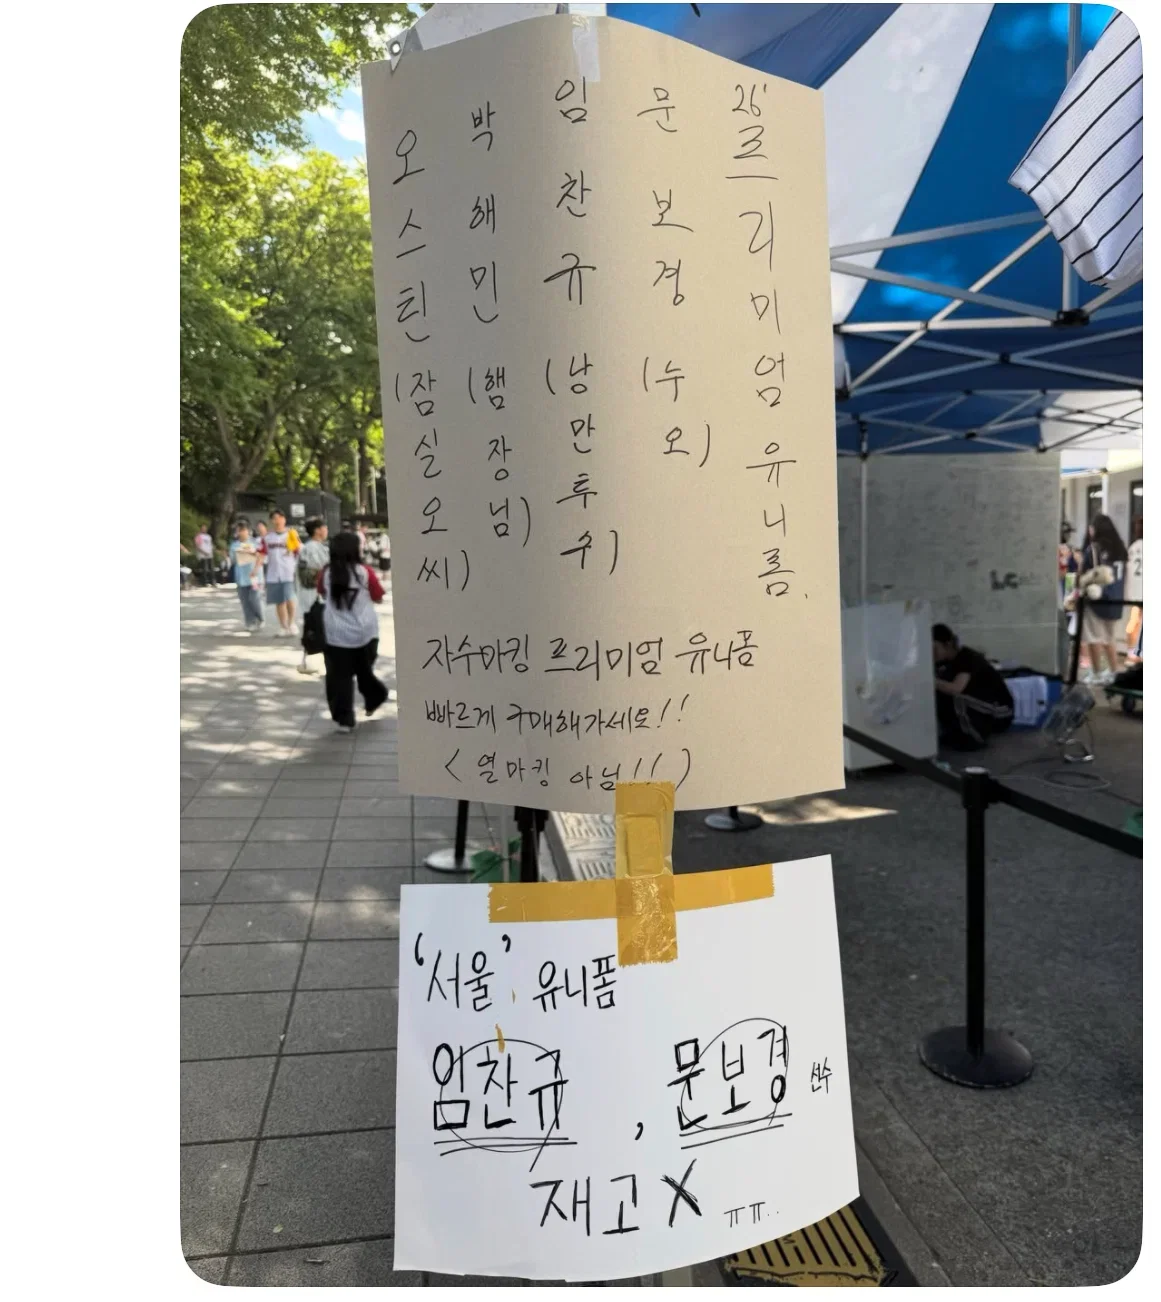 26' 프리미엄 유니폼.
문보경 (누오)
임찬규 (낭만투수)
박해민 (햄장님)
오스틴 (잠실오씨)
자수마킹 프리미엄 유니폼
빠르게 구매해가세요!!
< 열마킹 아님!! )
'서울' 유니폼
임찬규 , 문보경 선수
재고 X ㅠㅠ..